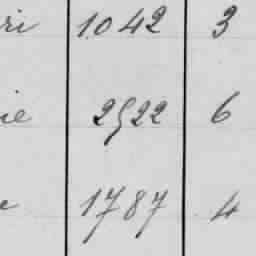 ri 1042 3
ie 2522 6
e 1787 4